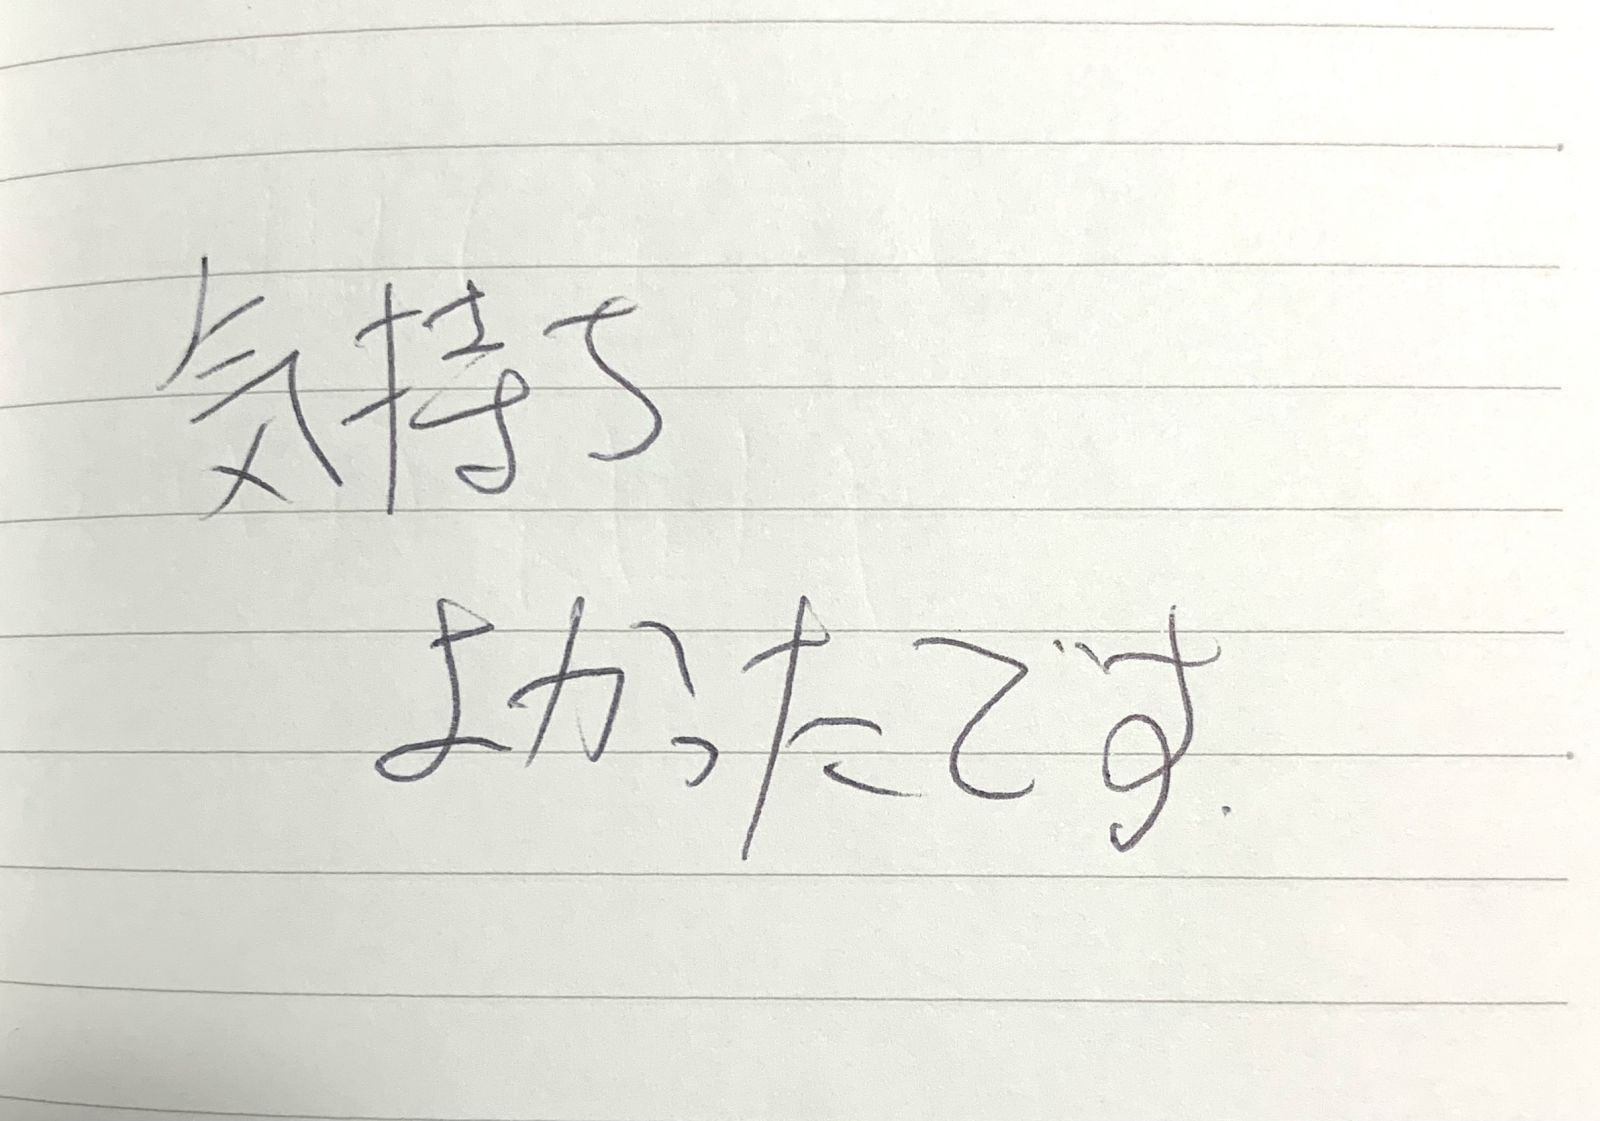 気持ち
よかったです.